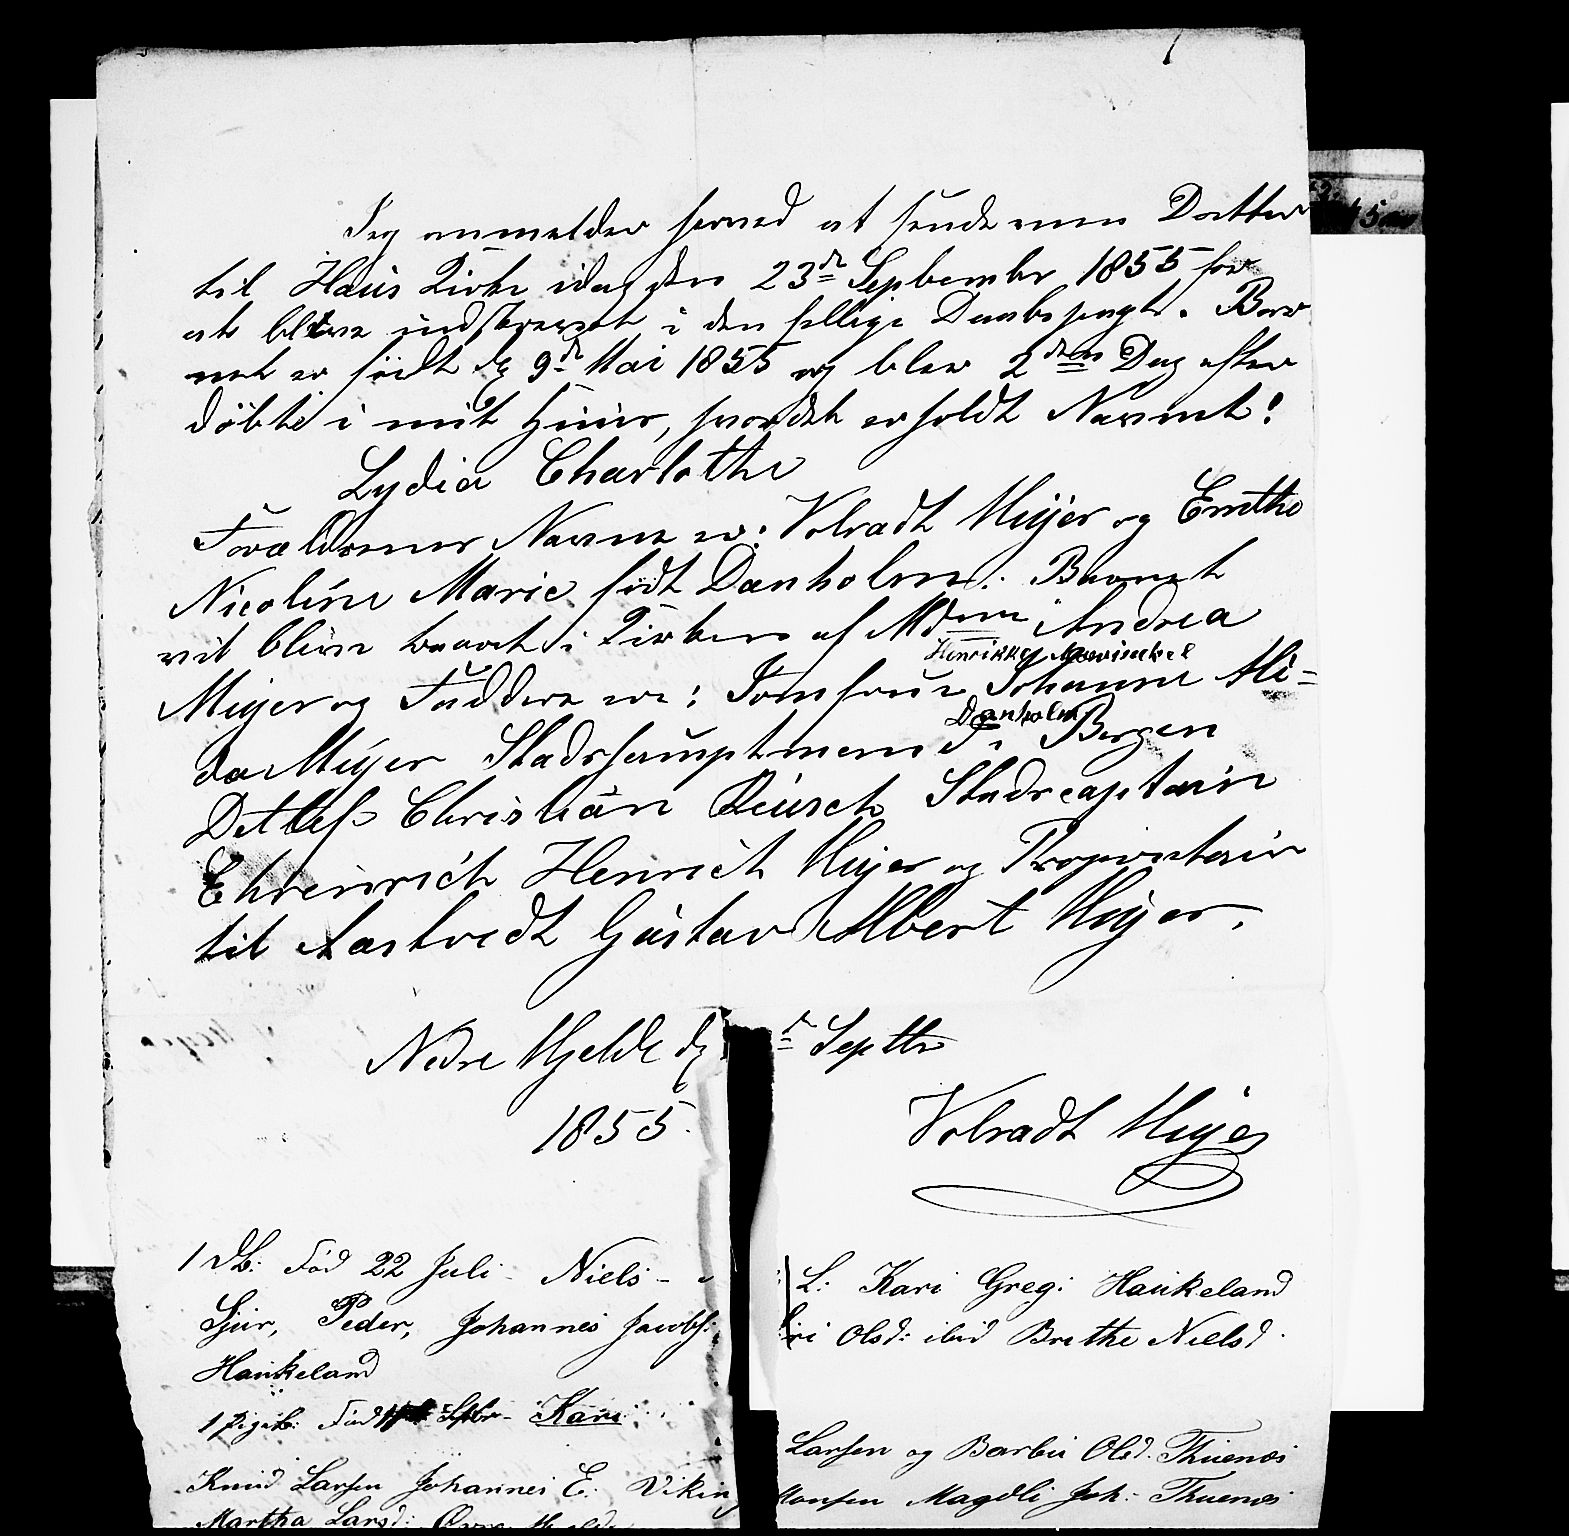 Jeg anmelder herved at sende min Datter
til Haus Kirke idag den 23de September 1855 for
at blive indskrevet i den hellige Daabspagt. Bar
net er født d. 9de Mai 1855 og blev 2den Dag efter
döbt i mit Huus, hvor det erholdt Navnet:
Lydia Charlothe
Forældrenes Navne er: Volradt Meyer og Emthe
Nicoline Marie født Danholm. Barnet
vil blive baaret i Kirken af Mdme Andrea
Henrikke Mowinckel
Meyer og Faddere ere: Jomfrue Johanne Ali=
Danholm
da Meyer Stadshauptmand i Bergen
Detlef Christian Reusch Stadscaptain
Ehrenreich Henrich Meyer og Proprietair
til Aastvedt Gustav Albert Meyer.
Nedre Mjelde d. Septbr
1855.
Volradt Meyer
1 Db: Fód 22 Juli - Niels - L: Kari Greg: Haukeland
Sjur, Peder, Johannes Jacobs: Olsd: ibid Brithe Nielsd.
Haukeland
1 Pigeb: Fód Septbr - Kari
Larsen og Barbu Olsd. Thuenæs
Knud Larsen Johannes E. Viking Hansen Magdli Joh: Thuenæs
Martha Larsd: Øvre Mjelde